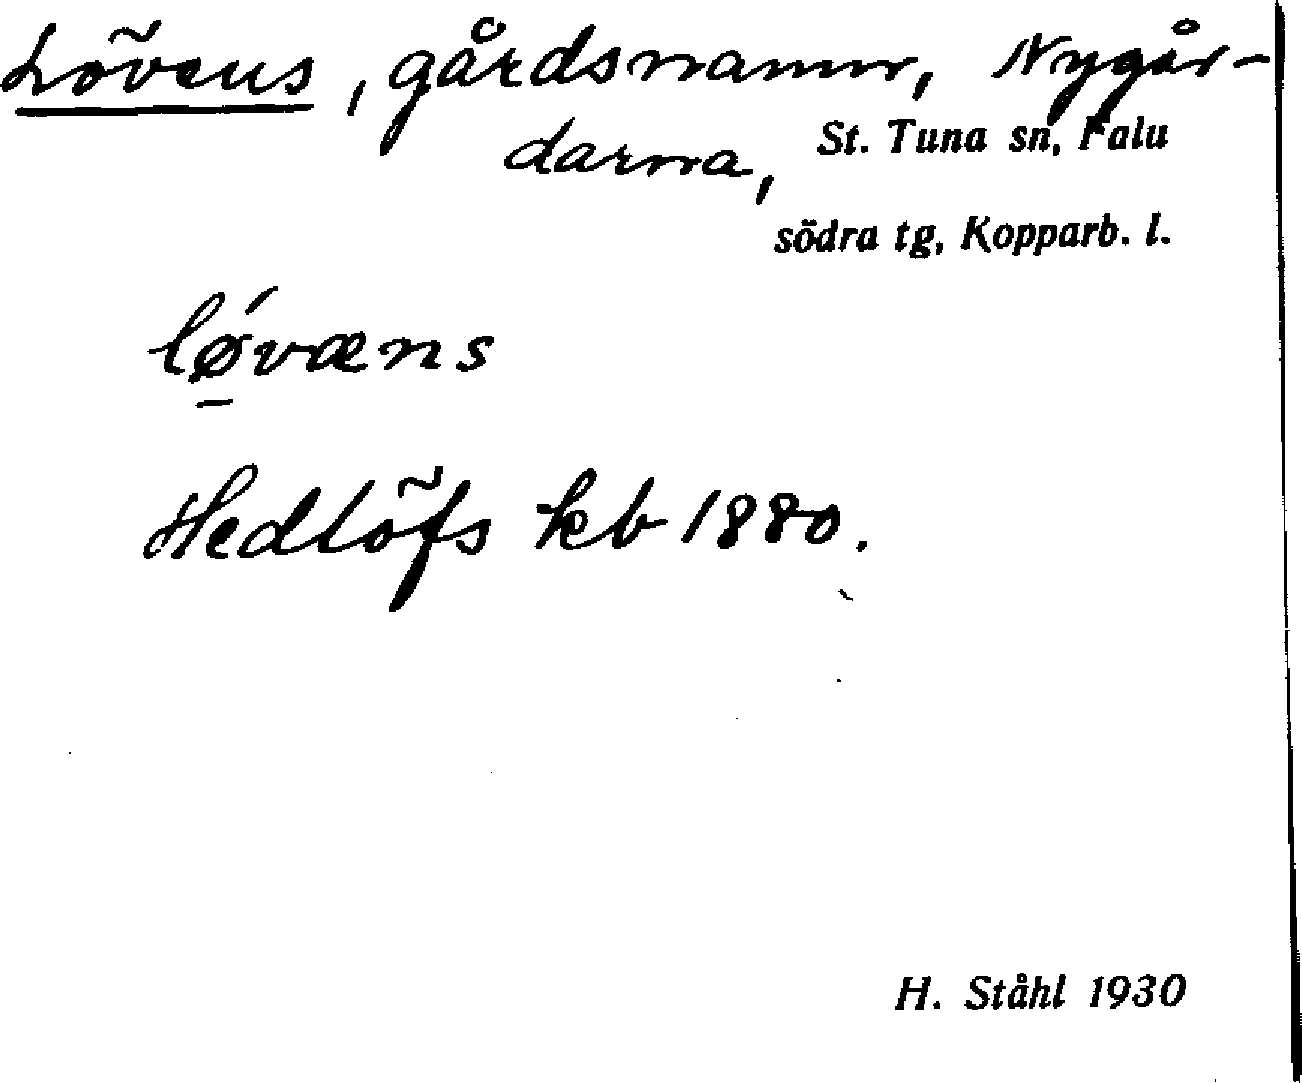 Lövens, gårdsnamn, Nygår-
darna, St. Tuna sn, Falu
södra tg, Kopparb. l.
lǿ̲væns
Hedlöfs kb 1880.
H. Ståhl 1930